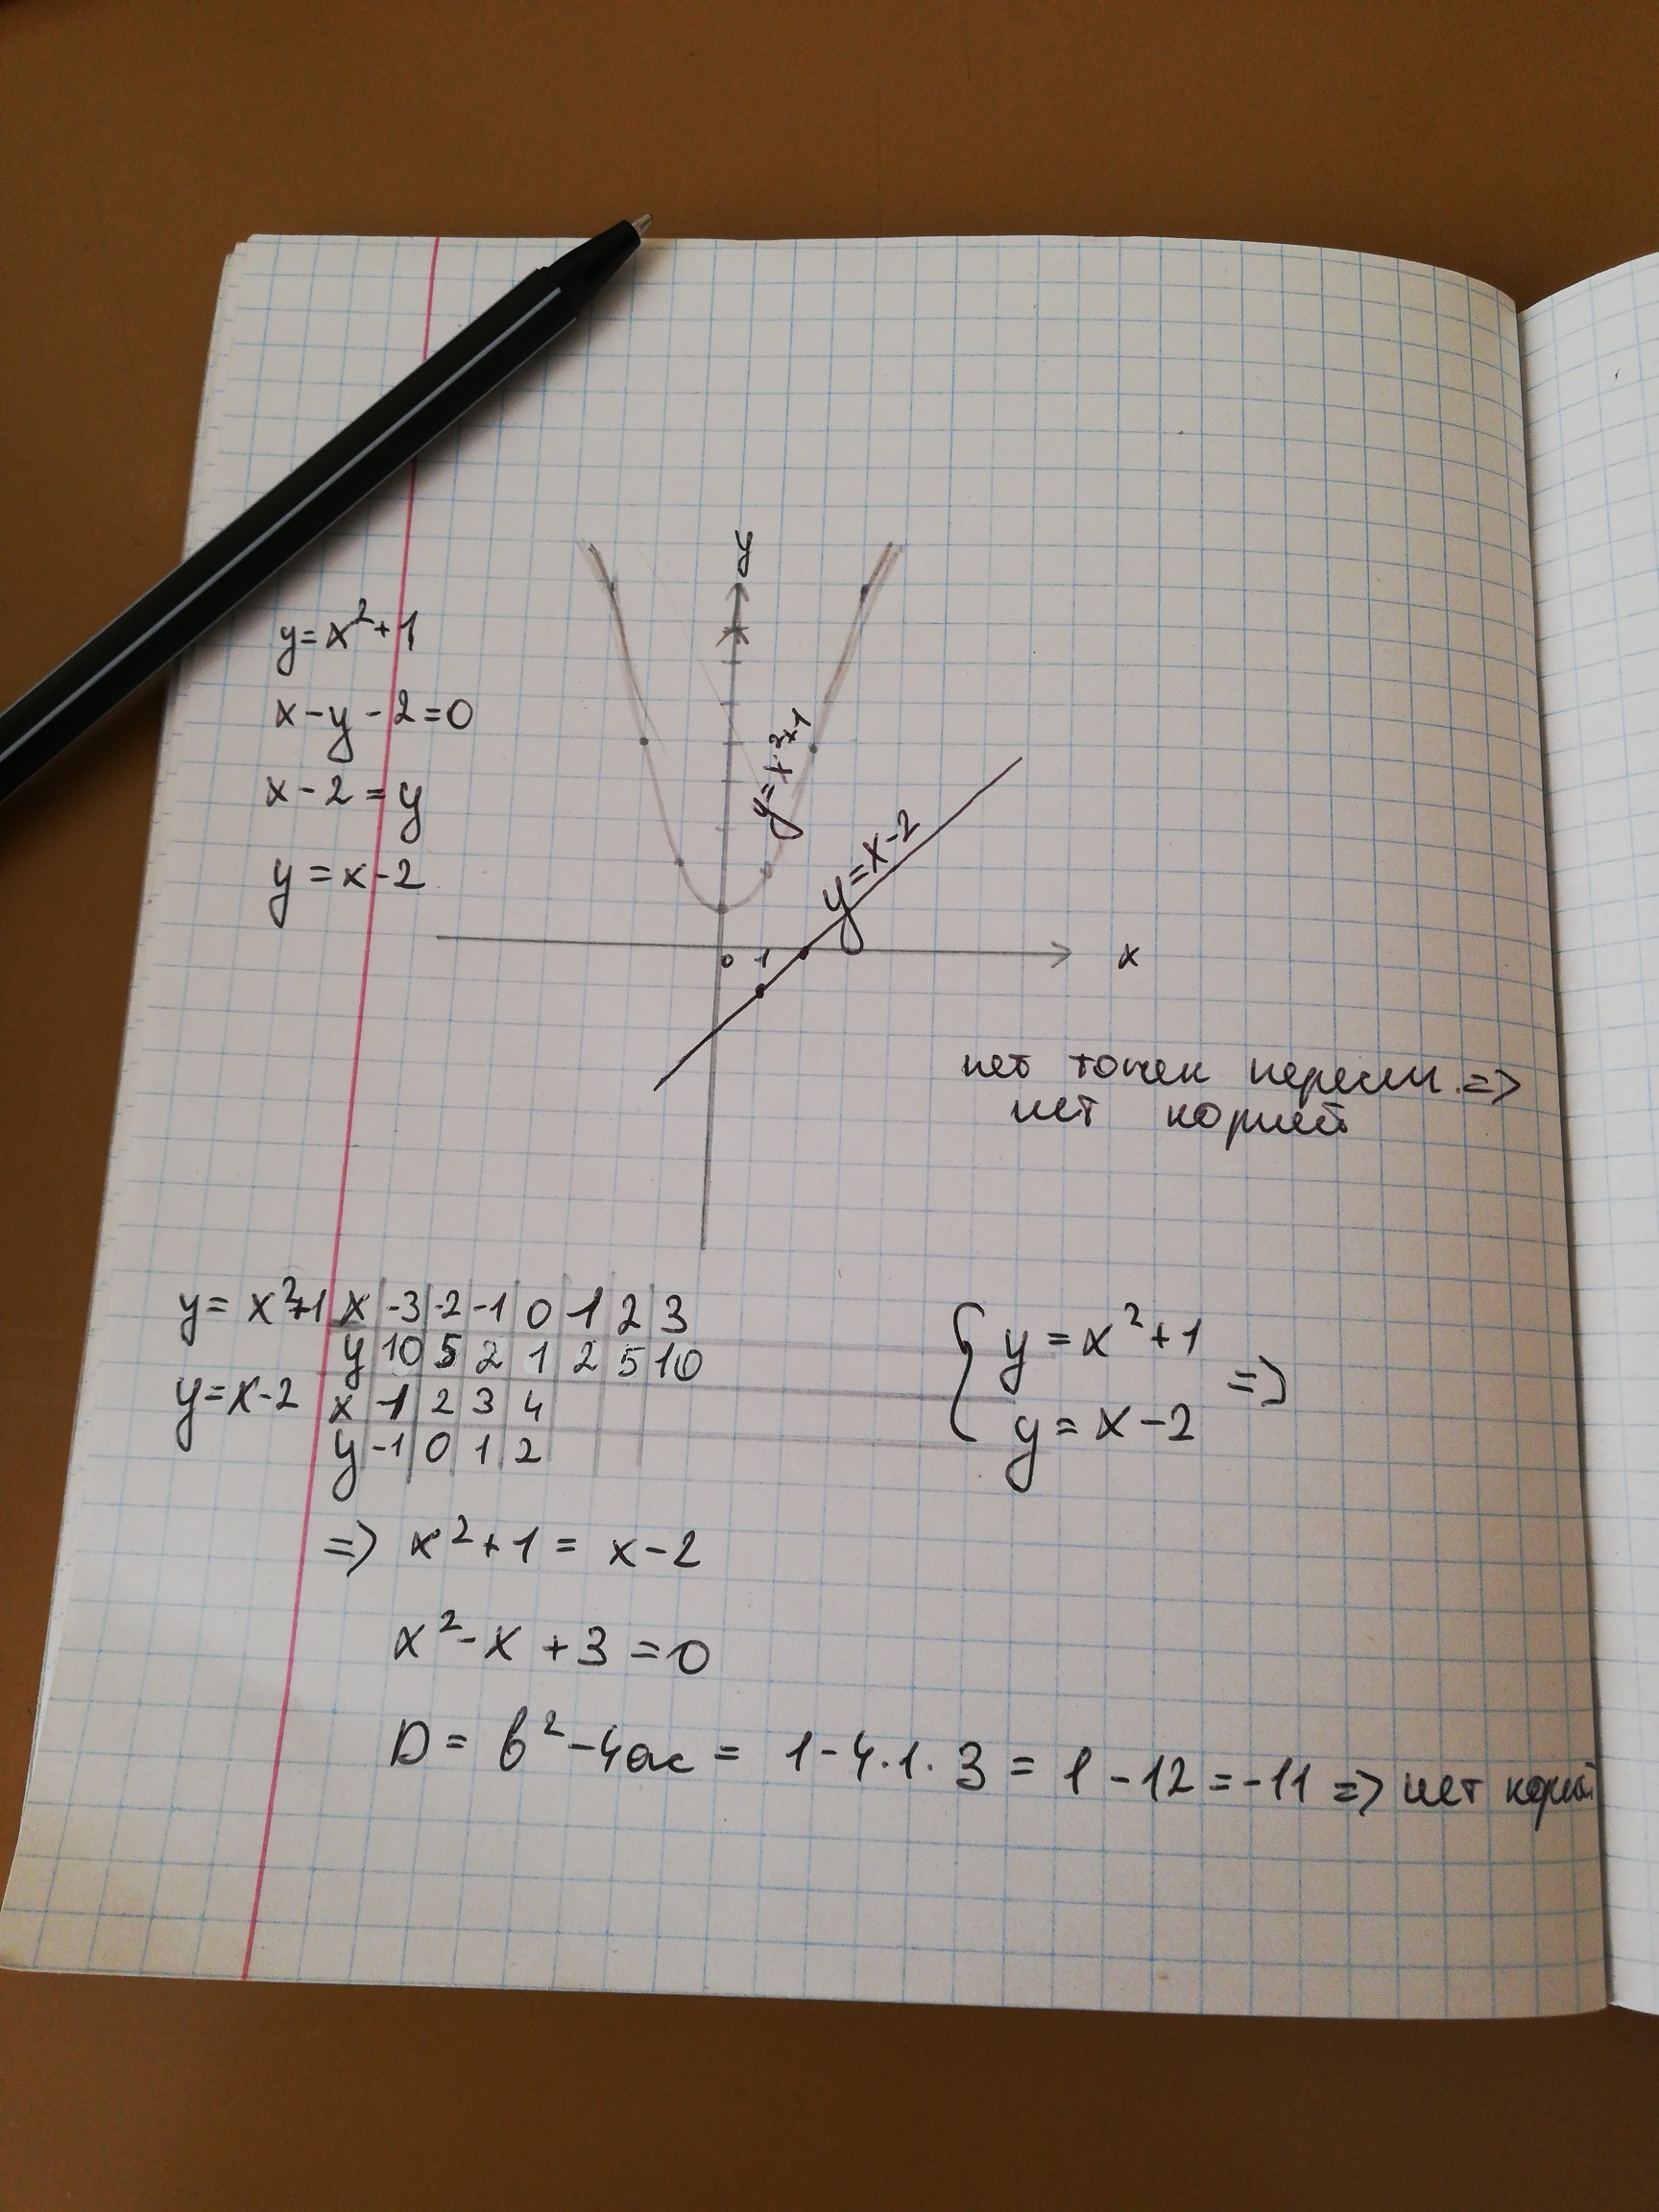 y
y=x²+1
x-y-2=0
x-2=y
y=x-2
y=x²+1
y=x-2
0 1
x
нет точек пересеч. =>
нет корней
y= x²+1 x -3 -2 -1 0 1 2 3
y 10 5 2 1 2 5 10
y=x-2 x 1 2 3 4
y -1 0 1 2
{ y=x²+1
y=x-2 =>
=> x²+1 = x-2
x²-x+3=0
D = b²-4ac = 1-4·1·3 = 1-12=-11 => нет корней